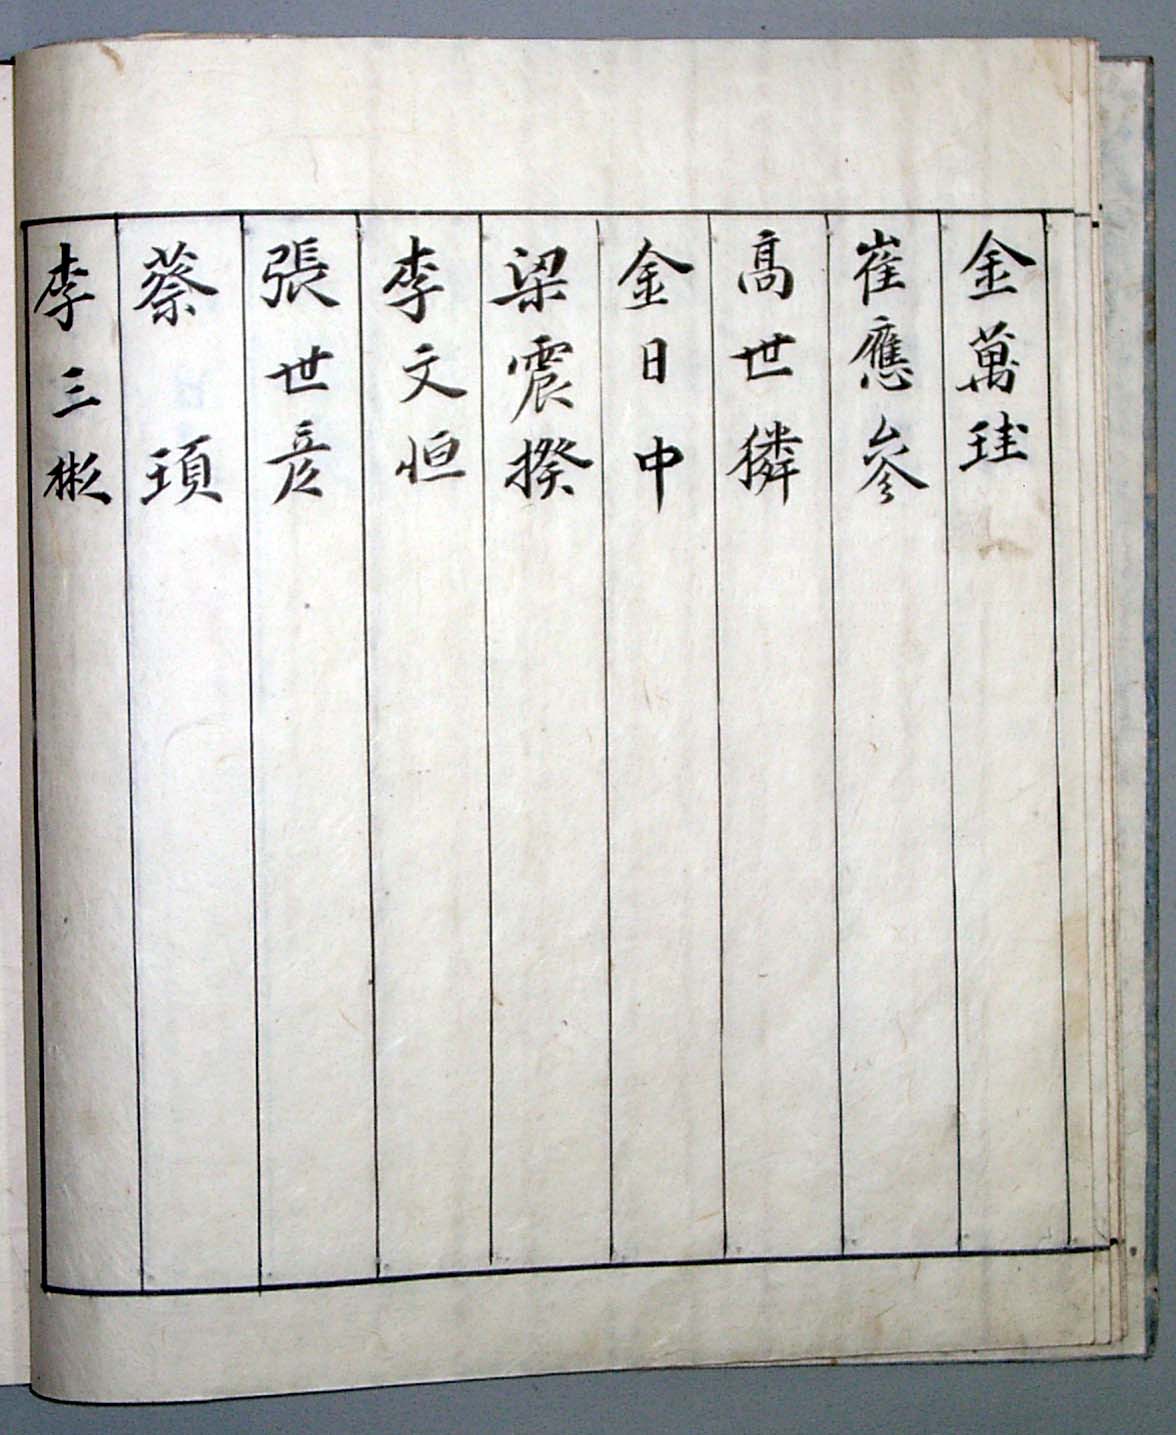 金萬珪
崔應參
髙世獜
金日中
梁震揆
李文恒
張世彦
蔡頊
李三彬